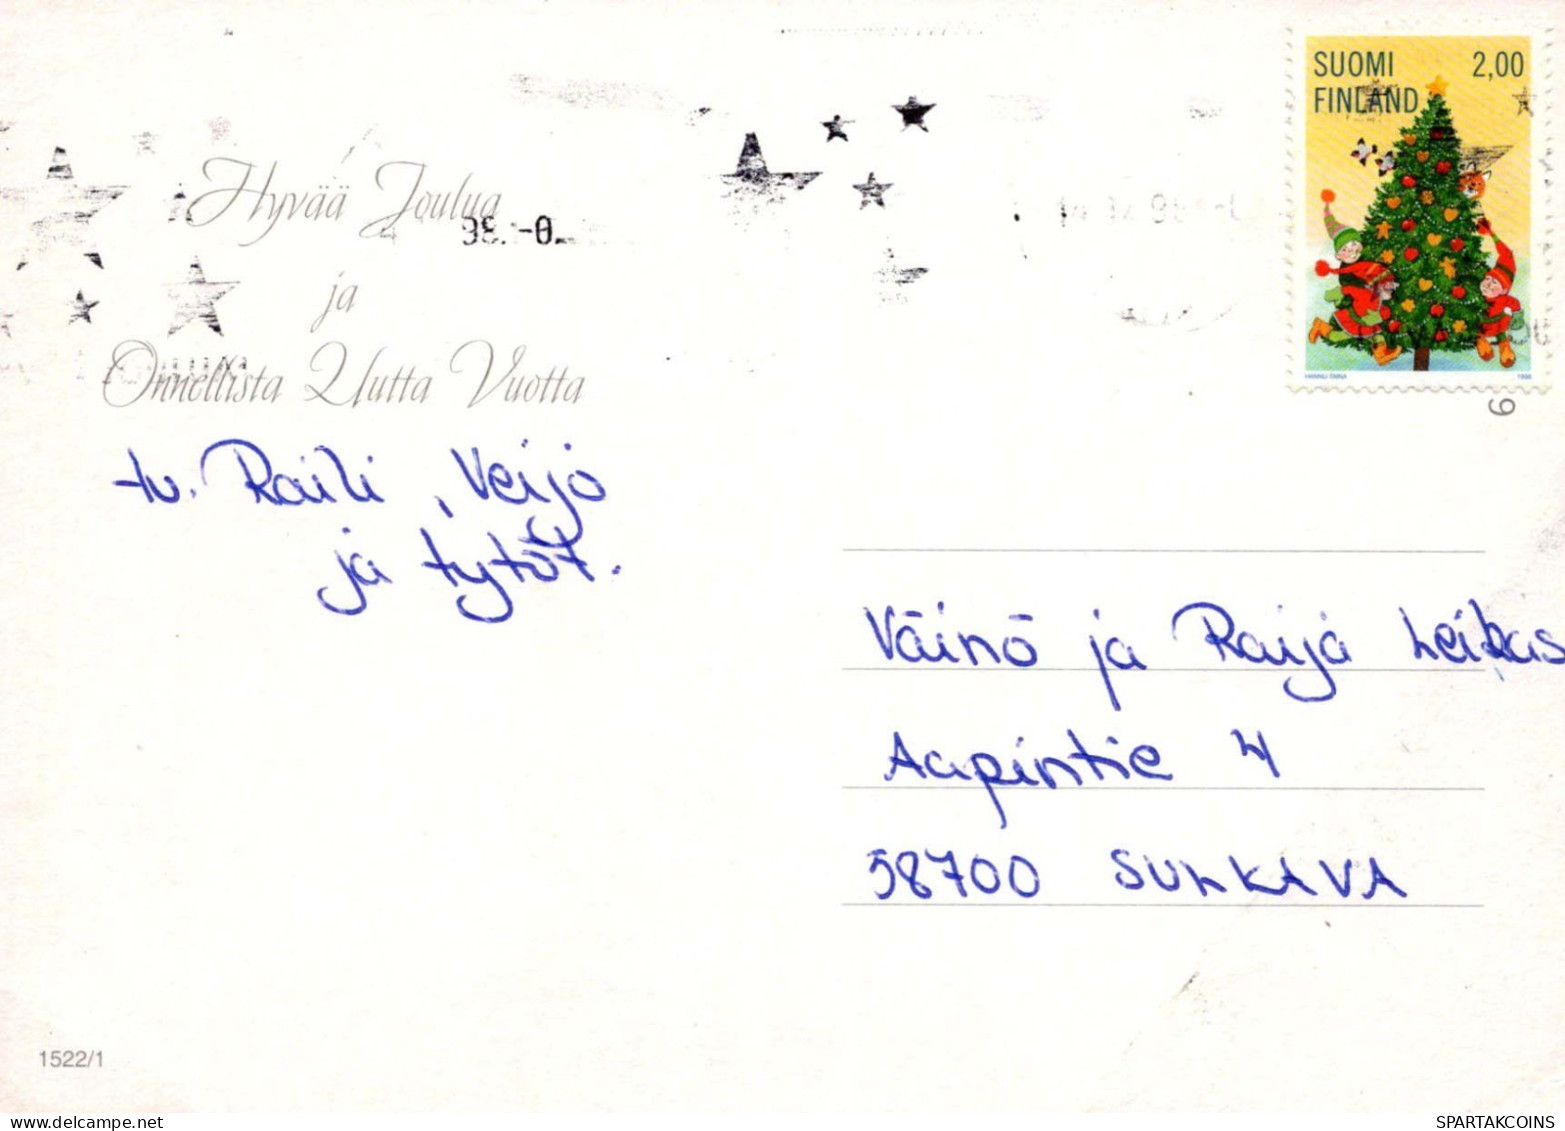 SUOMI 2,00
FINLAND
Hyvää Joulua
98.-0
ja
Onnellista Uutta Vuotta
9
tv. Raili, Veijo
ja tytöt.
Väinö ja Raija Leikas
Aapintie 4
58700 SULKAVA
1522/1
SPARTAKCOINS